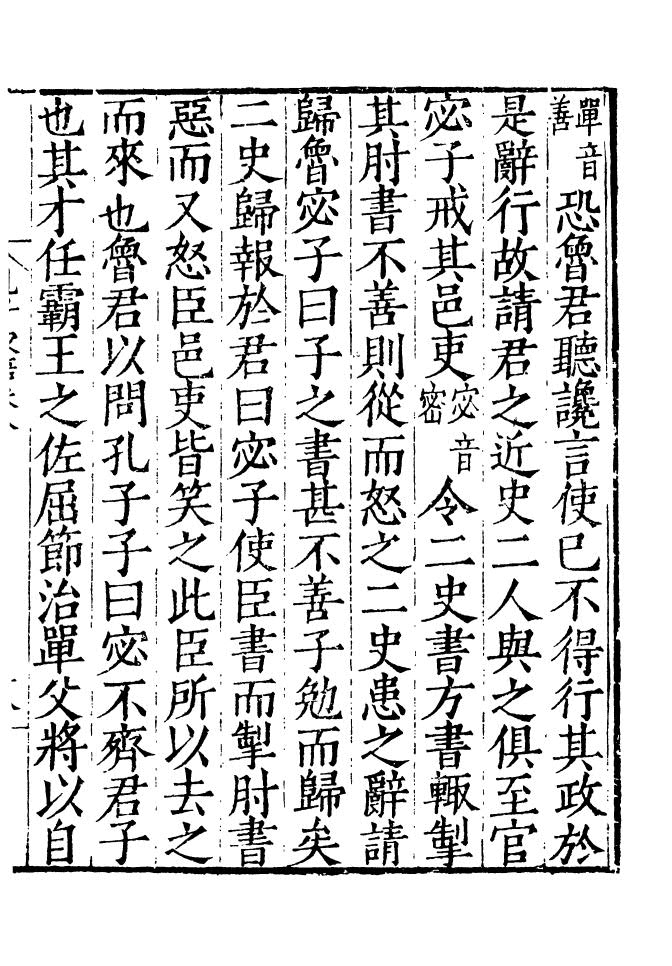 單音善恐魯君聽讒言使已不得行其政於
是辭行故請君之近史二人與之俱至官
宓子戒其邑吏宓音密令二史書方書輙掣
其肘書不善則從而怒之二史患之辭請
歸魯宓子曰子之書甚不善子勉而歸矣
二史歸報於君曰宓子使臣書而掣肘書
惡而又怒臣邑吏皆笑之此臣所以去之
而來也魯君以問孔子子曰宓不齊君子
也其才任霸王之佐屈節治單父將以自